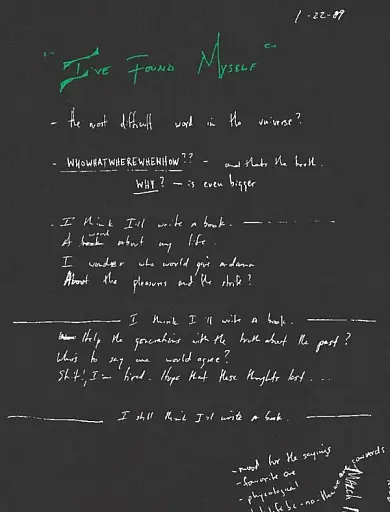 1-22-89
"I've Found Myself"
- the most difficult word in the universe?
- WHOWHATWHEREWHENHOW?? - and thats the truth.
WHY? - is even bigger
. I think I'll write a book.
A book word about my life.
I wonder who would give a damn
About the pleasures and the strife?
I think I'll write a book.
Help the generations with the truth about the past?
Who's to say one would agree?
Shit!, I'm tired. Hope that these thoughts last...
I still think I'll write a book.
- word for the sayings
- favorite one
- physcological